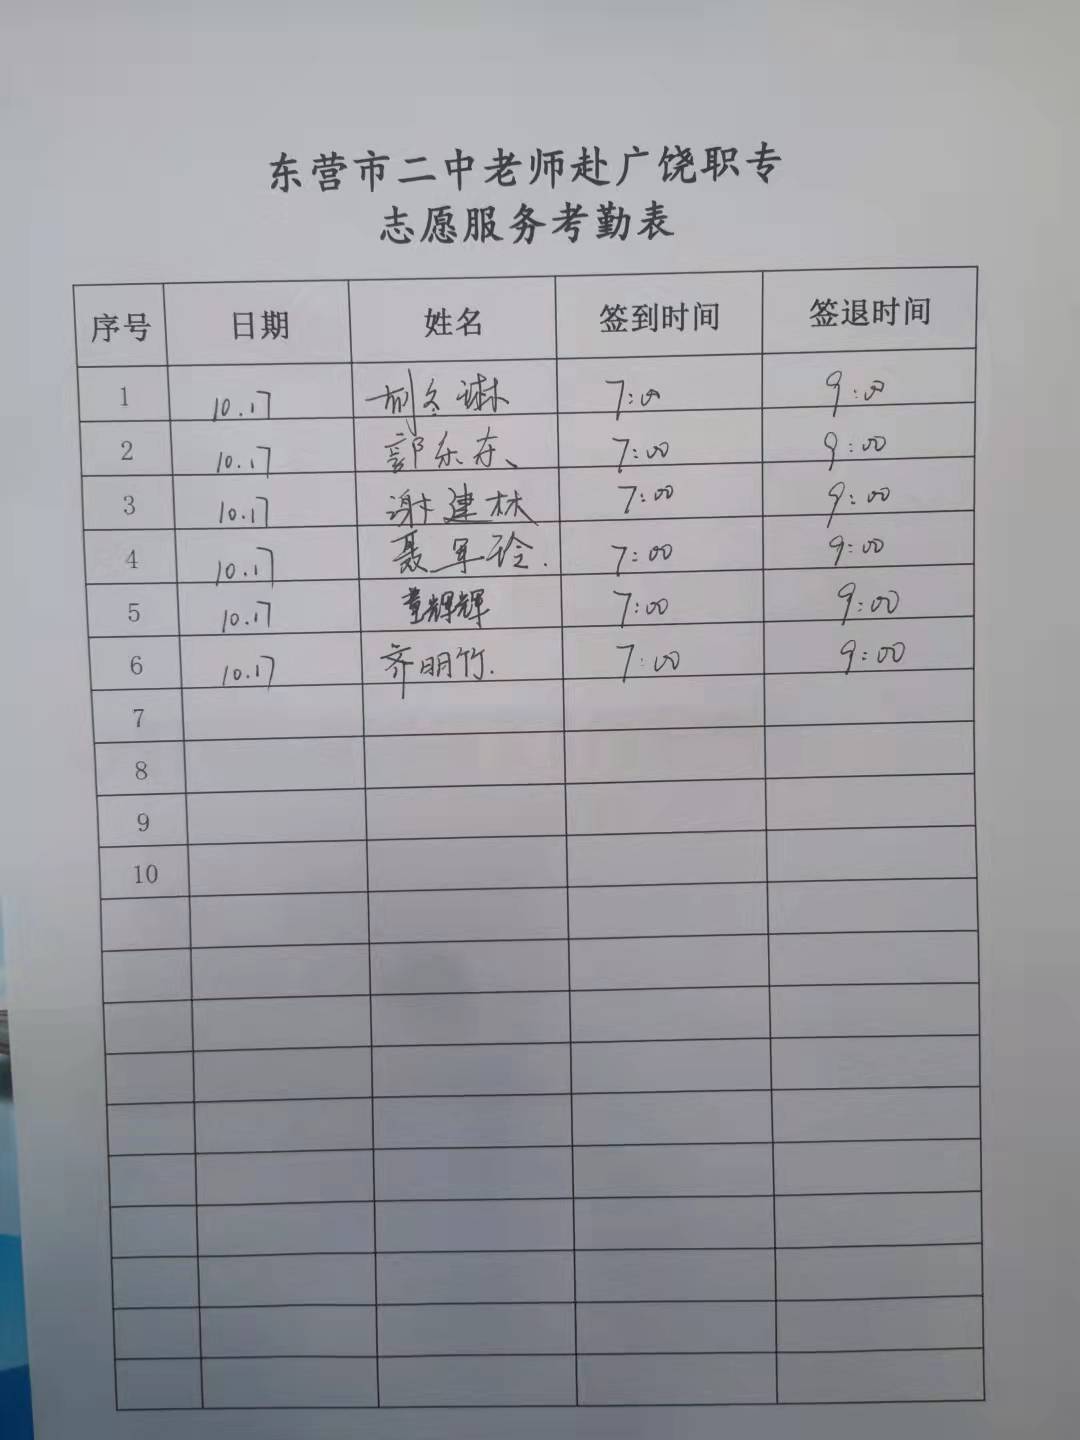 东营市二中老师赴广饶职专
志愿服务考勤表
序号 日期 姓名 签到时间 签退时间
1 10.17 7:00 9:00
2 10.17 郭东东、 7:00 9:00
3 10.17 谢建林 7:00 9:00
4 10.17 聂军玲. 7:00 9:00
5 10.17 董辉辉 7:00 9:00
6 10.17 齐明竹. 7:00 9:00
7
8
9
10